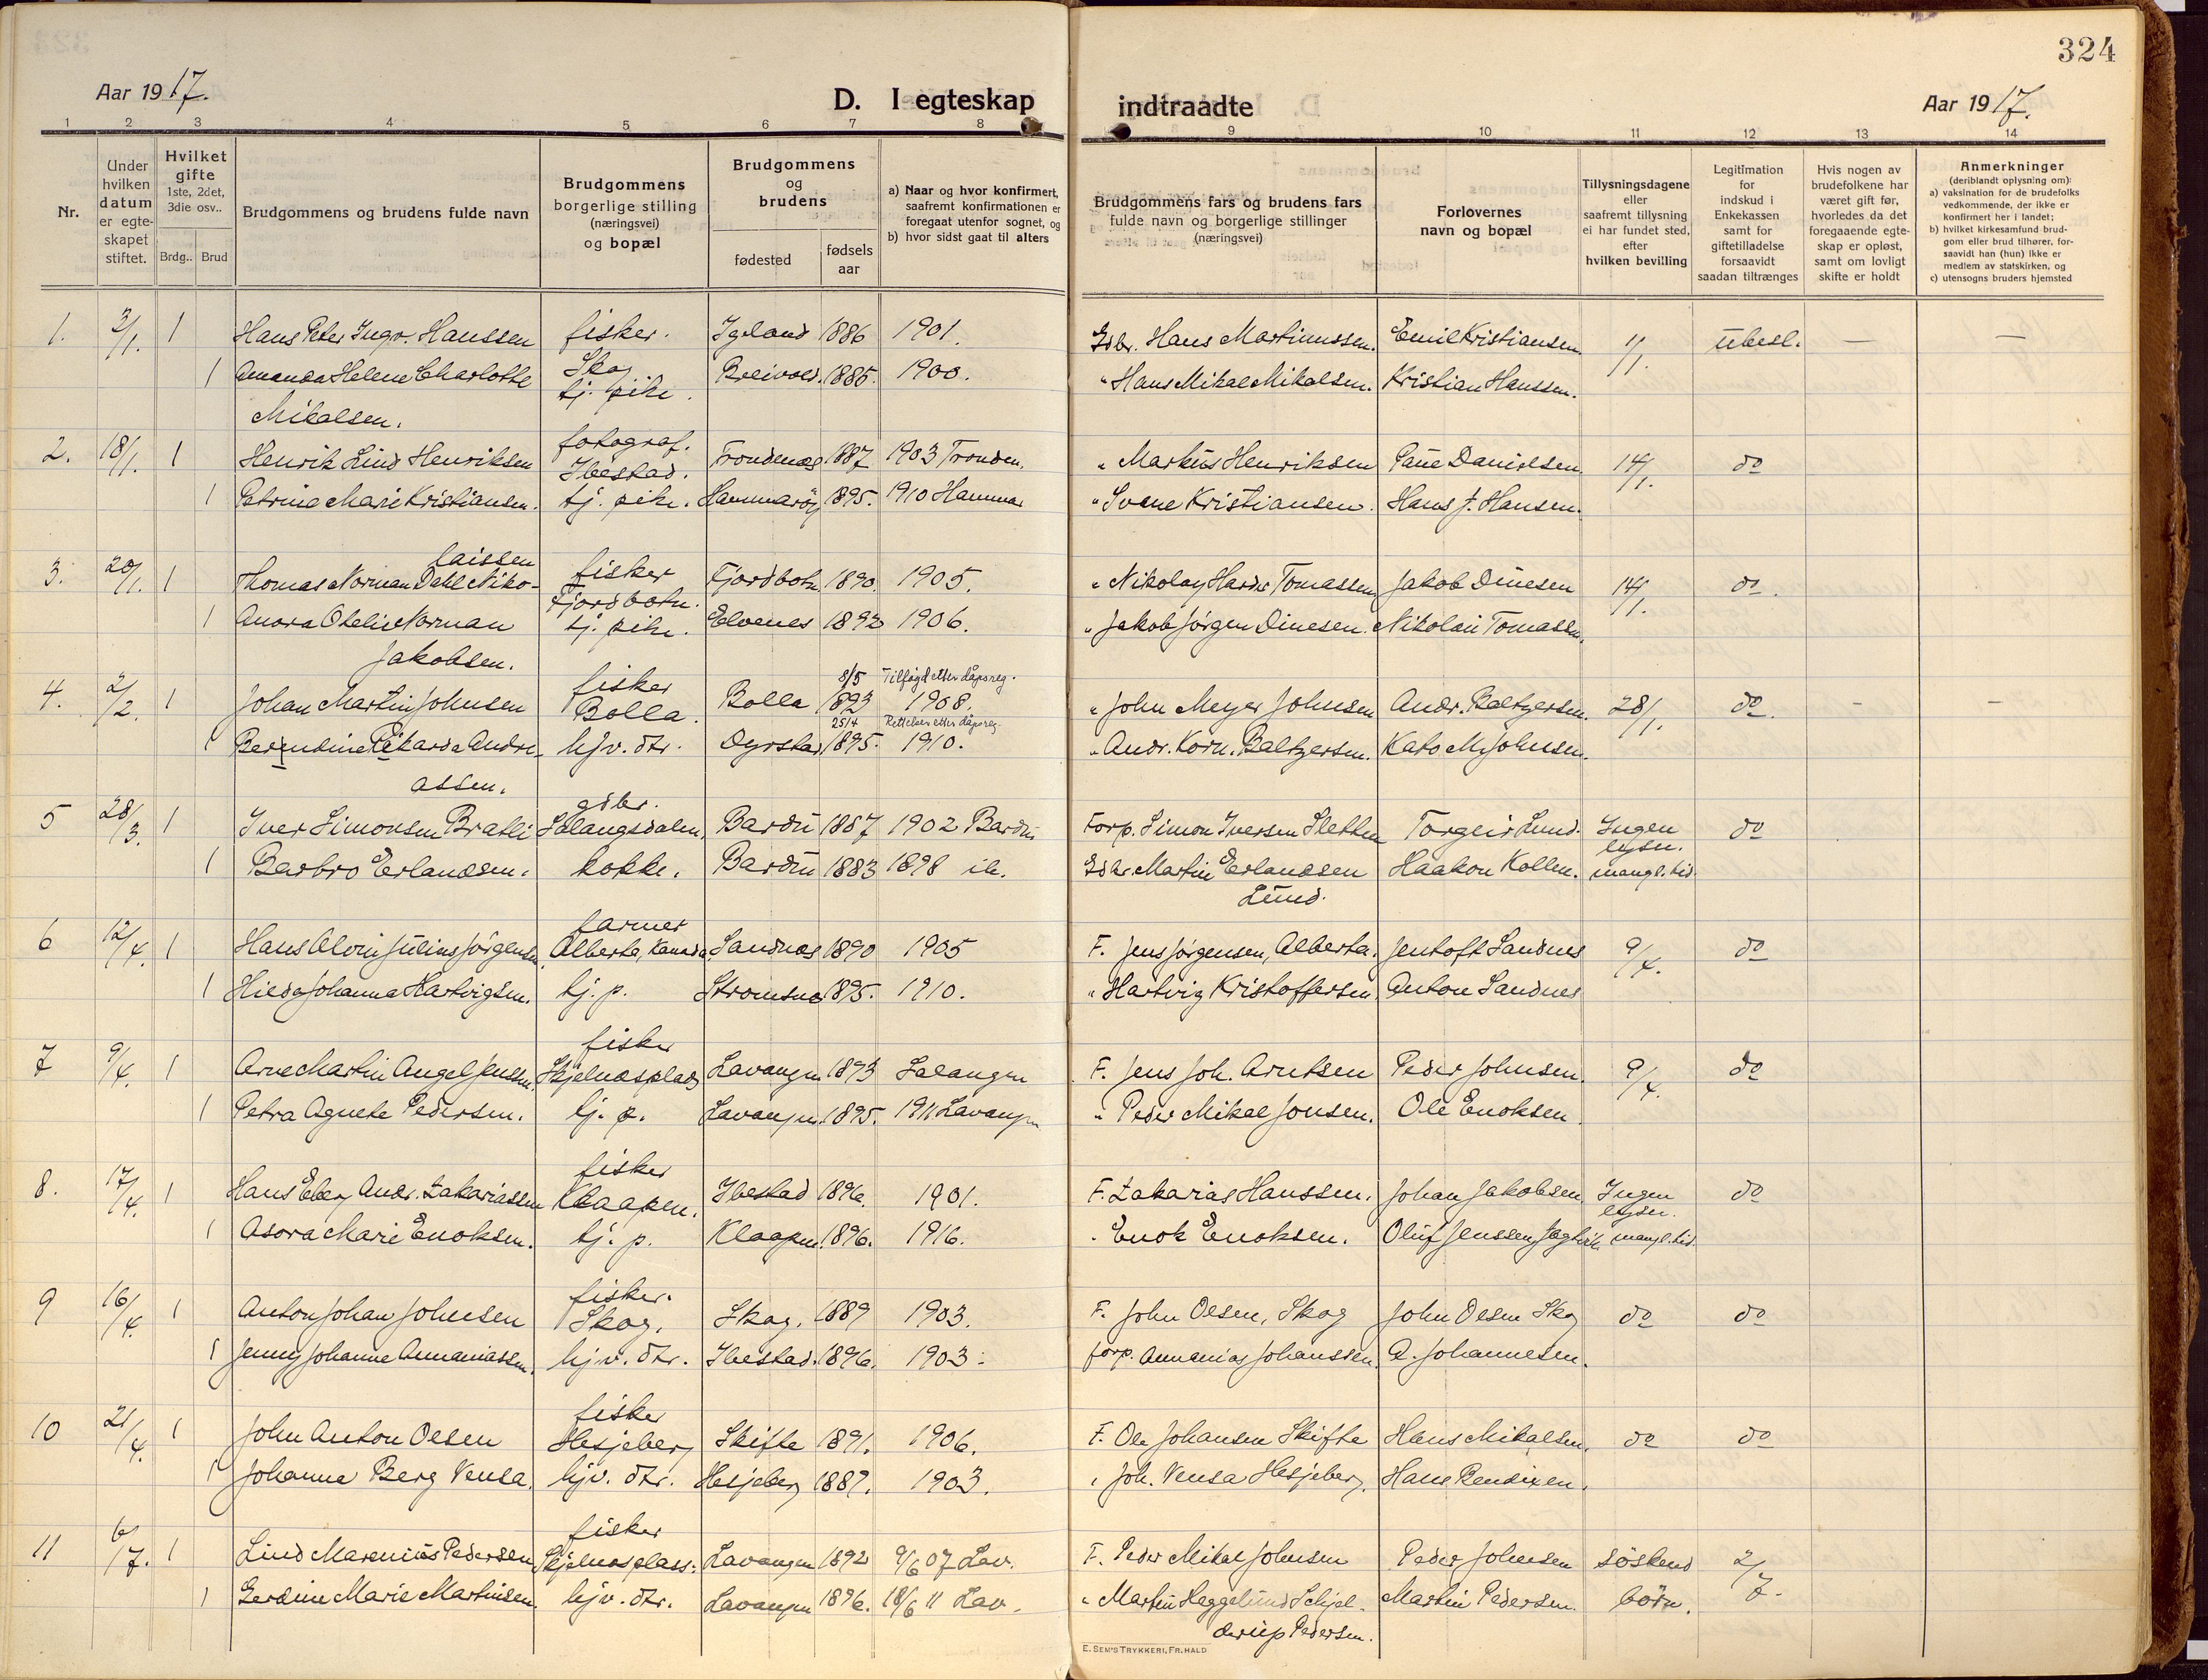 324
Aar 1917.
D. I egteskap
indtraadte
Aar 1917.
1 2 3 4 5 6 7 8
9 10 11 12 13 14
Nr.
Under hvilken datum er egteskapet stiftet.
Hvilket gifte 1ste, 2det, 3die osv..
Brdg.. Brud
Brudgommens og brudens fulde navn
Brudgommens borgerlige stilling (næringsvei) og bopæl
Brudgommens og brudens
fødested
fødselsaar
a) Naar og hvor konfirmert, saafremt konfirmationen er foregaat utenfor sognet, og
b) hvor sidst gaat til alters
Brudgommens fars og brudens fars fulde navn og borgerlige stillinger (næringsvei)
Forlovernes navn og bopæl
Tillysningsdagene eller saafremt tillysning ei har fundet sted, efter hvilken bevilling
Legitimation for indskud i Enkekassen samt for giftetilladelse forsaavidt saadan tiltrænges
Hvis nogen av brudefolkene har været gift før, hvorledes da det foregaaende egteskap er opløst, samt om lovligt skifte er holdt
Anmerkninger
(deriblandt oplysning om):
a) vaksination for de brudefolks vedkommende, der ikke er konfirmert her i landet;
b) hvilket kirkesamfund brudgom eller brud tilhører, forsaavidt han (hun) ikke er medlem av statskirken, og
c) utensogns bruders hjemsted
1. 3/1. 1 Hans Peter Ingv. Hanssen fisker. Skog Igeland 1886 1901. Gdbr. Hans Martinussen. Emil Kristiansen. 1/1. ubesl. — —
1 Amanda Helene Charlotte Mikalsen. tj. pike. Breivold. 1885. 1900. " Hans Mikal Mikalsen. Kristian Hanssen.
2. 18/1. 1 Henrik Lind Henriksen fotograf. Ibestad. Trondenæs 1887 1903 Tronden. " Markus Henriksen Paue Danielsen. 14/1. do
1 Petrine Marie Kristiansen. tj. pike. Hammarøy 1895. 1910 Hammar " Svene Kristiansen. Hans J. Hansen.
3. 20/1. 1 Thomas Norman Dahl Nikolaissen fisker Fjordbotn. Fjordbotn. 1890. 1905. " Nikolay Harder Tomassen Jakob Dinesen 14/1. do.
1 Anora Otelie Norman Jakobsen. tj. pike. Elvenes 1892 1906. " Jakob Jørgen Dinesen. Nikolai Tomassen.
4. 2/2. 1 Johan Martin Johnsen fisker Bolla. Bolla 8/5 1893 Tilføyd etter dåpsreg. 1908. " John Meyer Johnsen Andr. Baltzersen. 28/1. do. - -
1 Berendine Rikarda Andreassen. hjv. dtr. Dyrstad 25/4 1895. Rettelser etter dåpsreg. 1910. " Andr. Korn. Baltzersen. Kato M. Johnsen.
5 28/3. 1 Iver Simonsen Bratli gdbr. Salangsdalen. Bardu 1887 1902 Bardu Forp. Simon Iversen Sletten Torgeir Lund. Ingen lysn. mangl. tid. do
1 Barbro Erlandsen. kokke. Bardu 1883 1898 ib. Gdbr. Martin Erlandsen Lund. Haakon Kollen.
6 12/4. 1 Hans Alvin Julius Jørgensen farmer Alberta, Kanada. Sandnes 1890 1905 F. Jens Jørgensen, Alberta. Jentoft Sandnes 9/4. do
1 Hilda Johanna Hartvigsen. tj. p. Strømsnes 1895. 1910. " Hartvig Kristoffersen. Anton Sandnes
7 9/4. 1 Arne Martin Angel Jensen. fisker Skjelnesplads Lavangen 1893 Salangen F. Jens Joh. Arntsen Peder Johnsen. 9/4. do
1 Petra Agnete Pedersen. tj. p. Lavangen. 1895. 1911 Lavangen " Peder Mikal Jonsen. Ole Enoksen.
8. 17/4. 1 Hans Eberg Andr. Zakariassen fisker Klaapen. Ibestad 1896. 1901. F. Zakarias Hanssen. Johan Jakobsen. Ingen lysn. mangl. tid. do
1 Asora Marie Enoksen. tj. p. Klaapen. 1896. 1916. " Enok Enoksen. Oluf Jenssen
9 16/4. 1 Anton Johan Johnsen fisker. Skog. Skog. 1889 1903. F. John Olsen, Skog John Olsen Skog do do
1 Jenny Johanne Annaniassen. hjv. dtr. Ibestad. 1896. 1903. forp. Annanias Johanssen. A. Johannesen.
10 21/4. 1 John Anton Olsen fisker Hesjeberg Skifte 1891. 1906. F. Ole Johansen Skifte Hans Mikalsen. do do
1 Johanna Berg Vensa. hjv. dtr. Hesjeberg 1887. 1903. " Joh. Vensa Hesjeberg. Hans Bendixen.
11 6/7. 1 Lind Marenius Pedersen. fisker Skjelnesplass. Lavangen 1892 9/6 07 Lav. F. Peder Mikal Johnsen Peder Johnsen søskend børn. 2/7.
1 Gerdine Marie Martinsen. hjv. dtr. Lavangen 1896. 18/6 11 Lav. " Martin Heggelund Schjelderup Pedersen. Martin Pedersen.
E. SEM'S TRYKKERI, FR.HALD